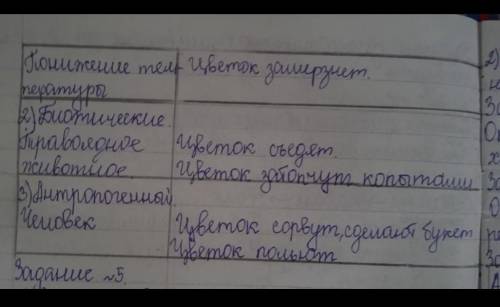 Понижение тем- Цветок замерзнет.
пературы
2) Биотические.
Травоядное Цветок съедят.
животное. Цветок затопчут копытами
3) Антропогенный.
Человек Цветок сорвут, сделают букет
Цветок польют
Задание №5.
2)